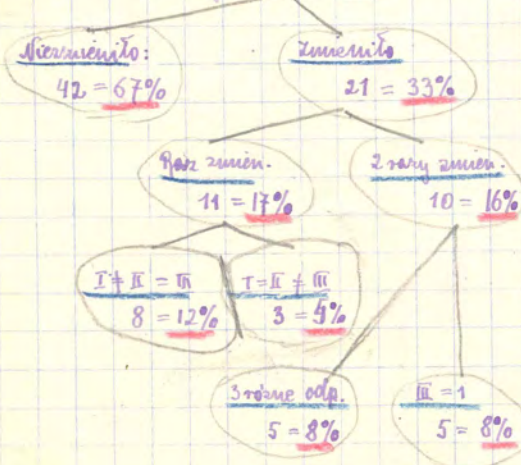 Niezmieniło:
42 = 67%
Zmieniło
21 = 33%
Raz zmien.
11 = 17%
2 razy zmien.
10 = 16%
I ≠ II = III
8 = 12%
I = II ≠ III
3 = 5%
3 różne odp.
5 = 8%
III = 1
5 = 8%